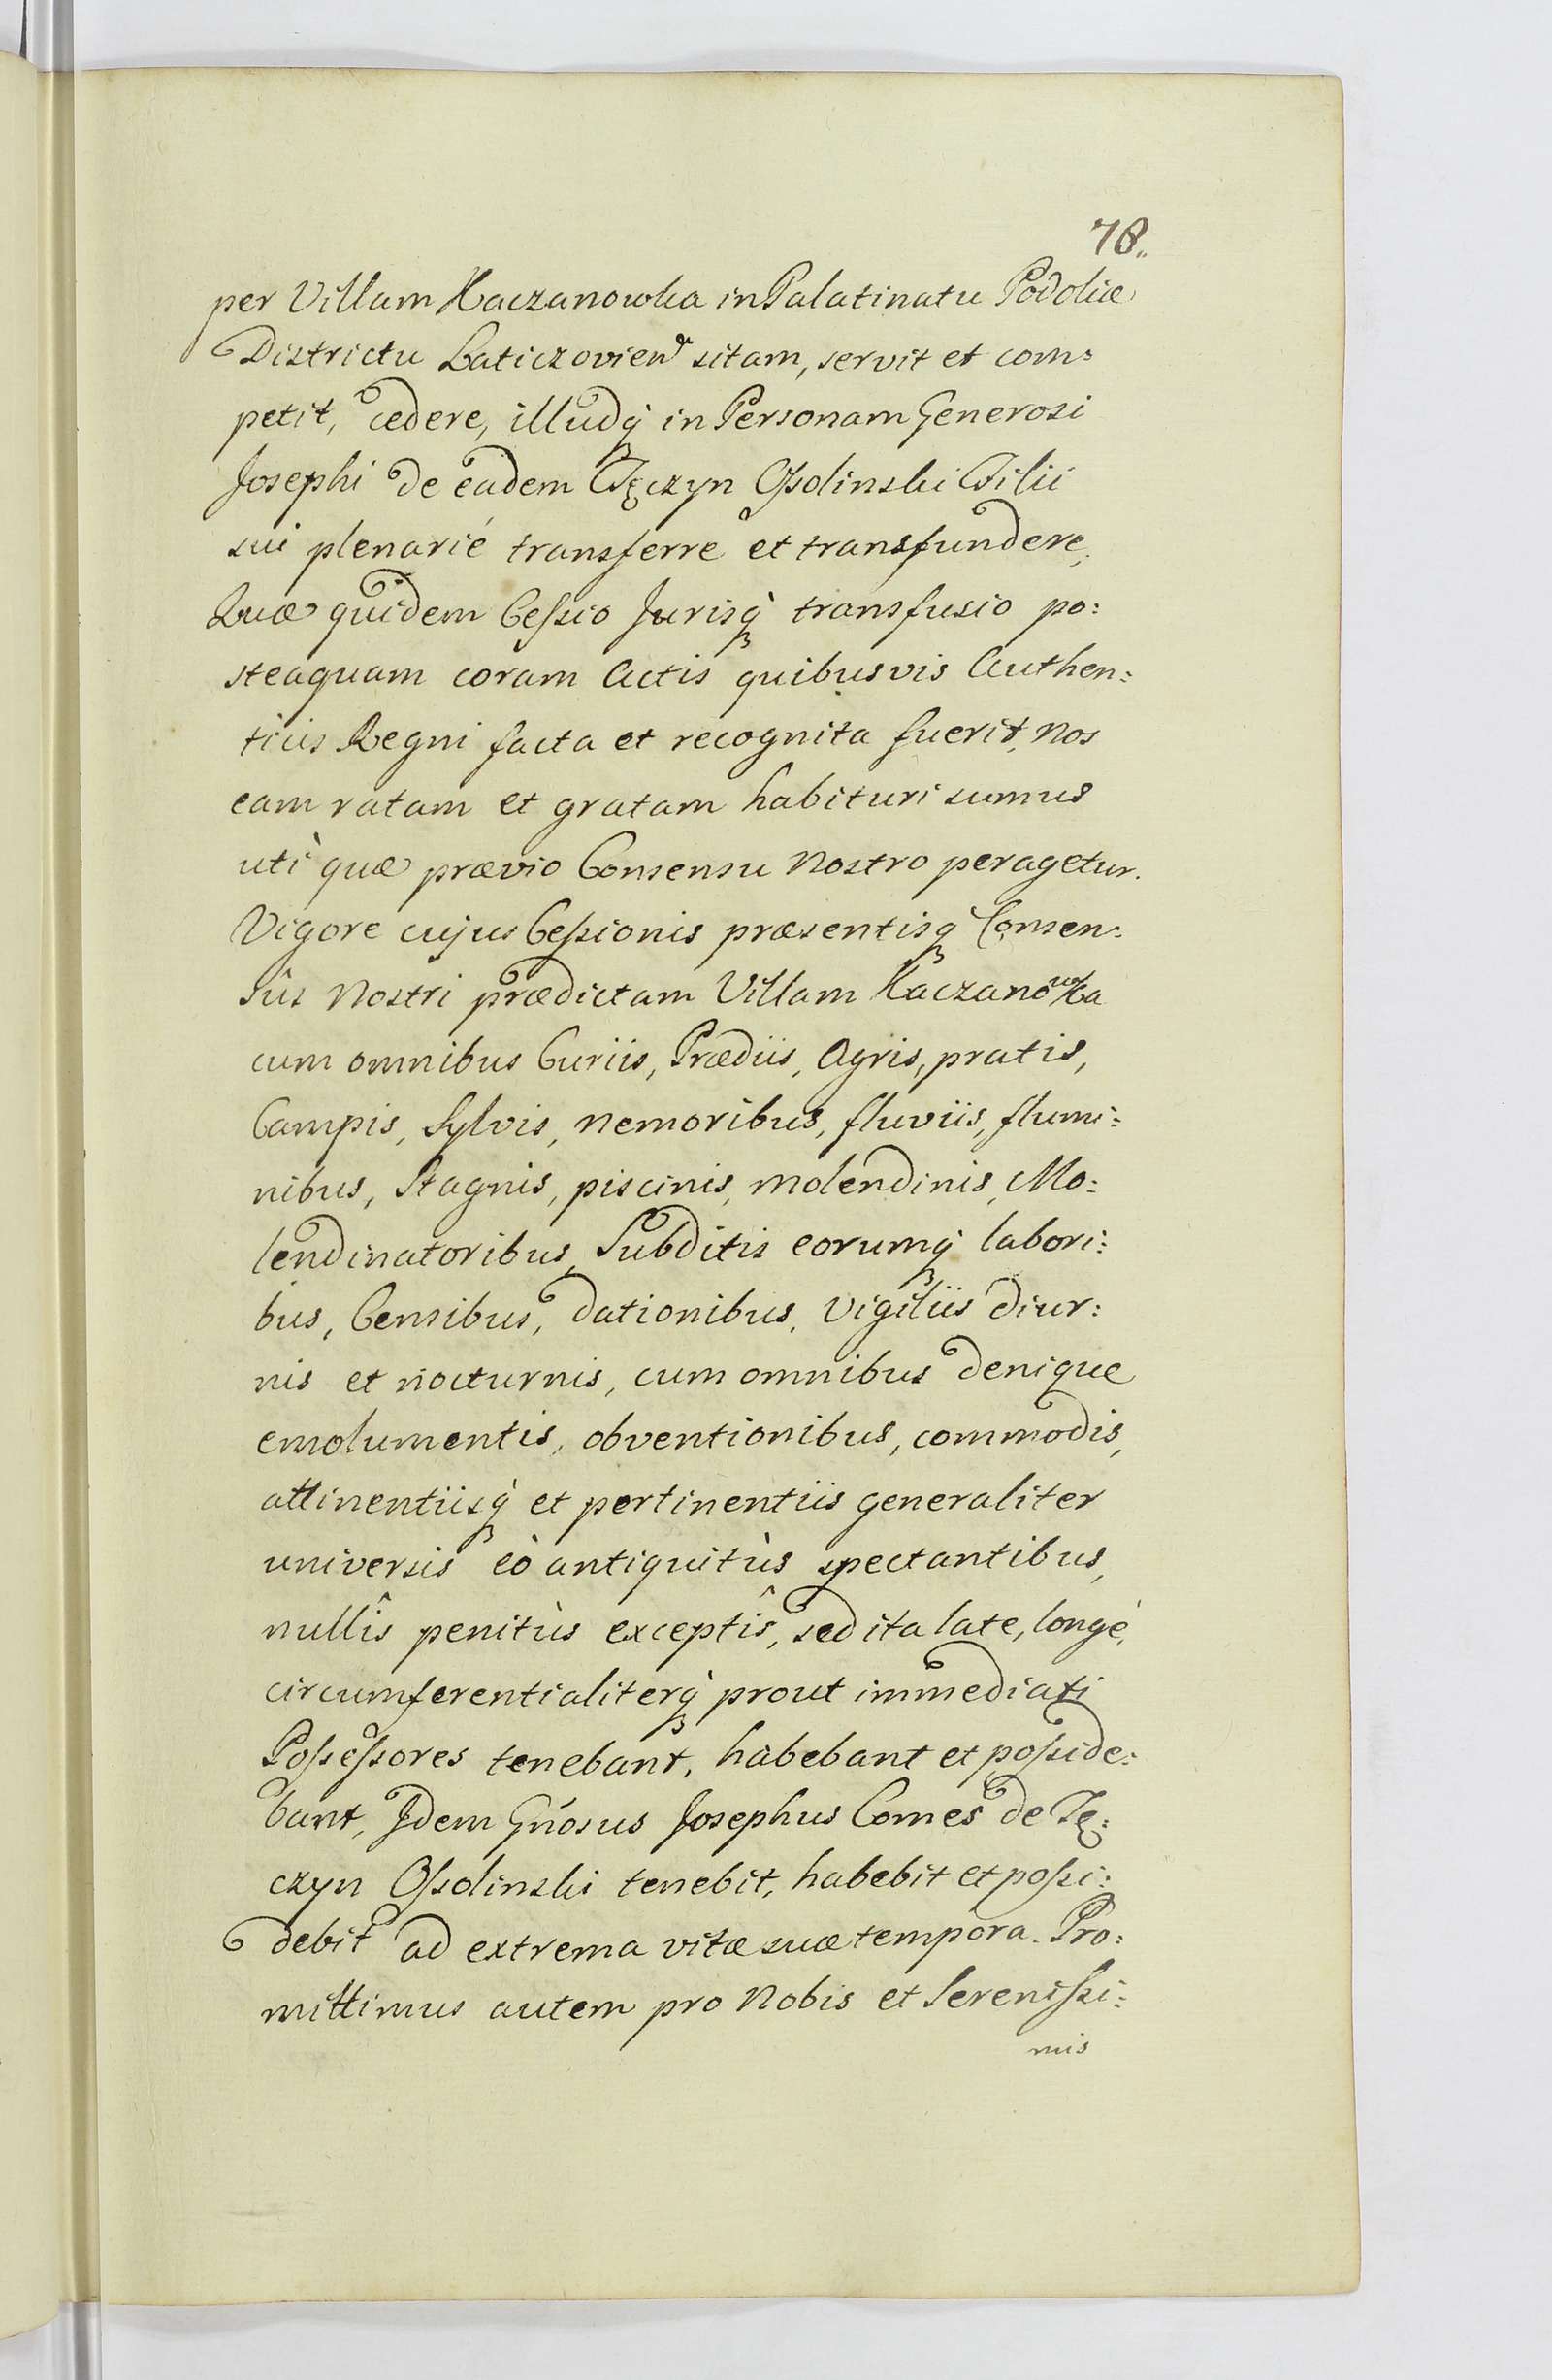 78.
per Villam Kaczanowka in Palatinatu Podoliæ
Districtu Laticzovien sitam, servit et com:
petit, cedere, illudq̀ in Personam Generosi
Josephi de eadem Tęczyn Oſsolinski Filii
sui plenariè transferre et transfundere,
Quæ quidem Ceſsio Jurisq̀ transfusio po:
steaquam coram Actis quibusvis Authen:
ticis Regni facta et recognita fuerit, Nos
eam ratam et gratam habituri sumus
utì quæ prævio Consensu Nostro peragetur.
Vigore cujus Ceſsionis præsentisq̀ Consen:
sûs Nostri prædictam Villam Kaczanowka
cum omnibus Curiis, Prædiis, Agris, pratis,
Campis, Sylvis, Nemoribus, fluviis, flumi:
nibus, Stagnis, piscinis, Molendinis, Mo:
lendinatoribus, Subditis eorumq̀ labori:
bus, Censibus, dationibus, Vigiliis diur:
nis et nocturnis, cum omnibus denique
emolumentis, obventionibus, commodis,
attinentiisq̀ et pertinentiis generaliter
universis eò antiquitùs spectantibus,
nullîs penitùs exceptîs, sed ita late, longè,
circumferentialiterq̀ prout immediati
Poſseſsores tenebant, habebant et poſside:
bant, Idem Gñosus Josephus Comes de Tę:
czyn Oſsolinski tenebit, habebit et poſsi:
debit ad extrema vitæ suæ tempora. Pro:
mittimus autem pro Nobis et Sereniſsi:
mis